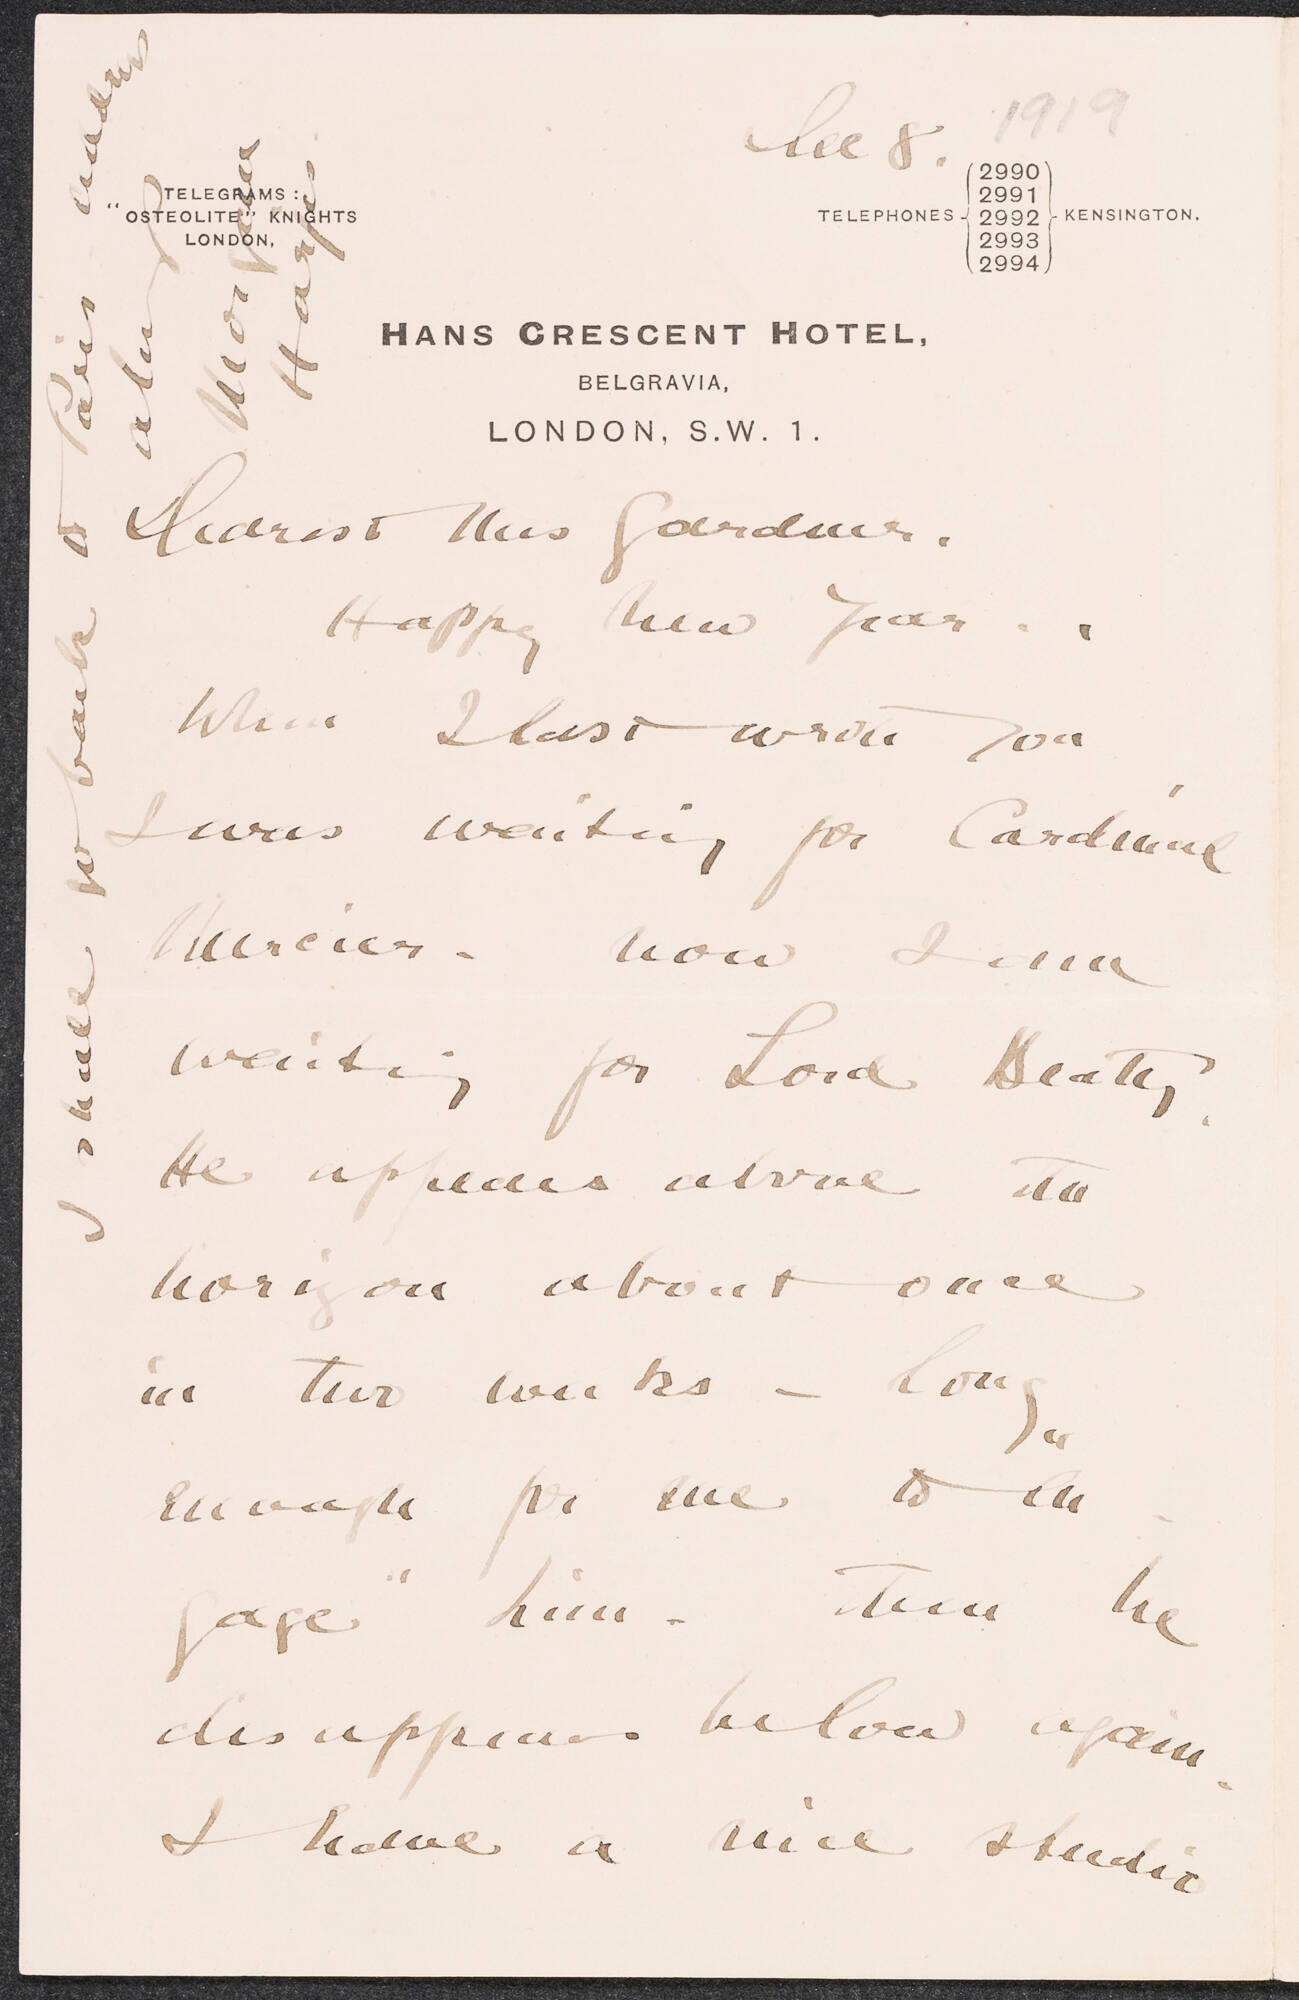 Dec 8. 1919
TELEGRAMS:
"OSTEOLITE" KNIGHTS
LONDON,
TELEPHONES { 2990 2991 2992 2993 2994 } KENSINGTON.
HANS CRESCENT HOTEL,
BELGRAVIA,
LONDON, S.W. 1.
Dearest Mrs Gardner.
Happy New Year . .
When I last wrote you
I was waiting for Cardinal
Mercier - now I am
waiting for Lord Beatty.
He appears above the
horizon about once
in two weeks - long
enough for me to "en-
gage" him - Then he
disappears below again.
I have a nice studio
I shall go back to Paris
Morgan
Harjes